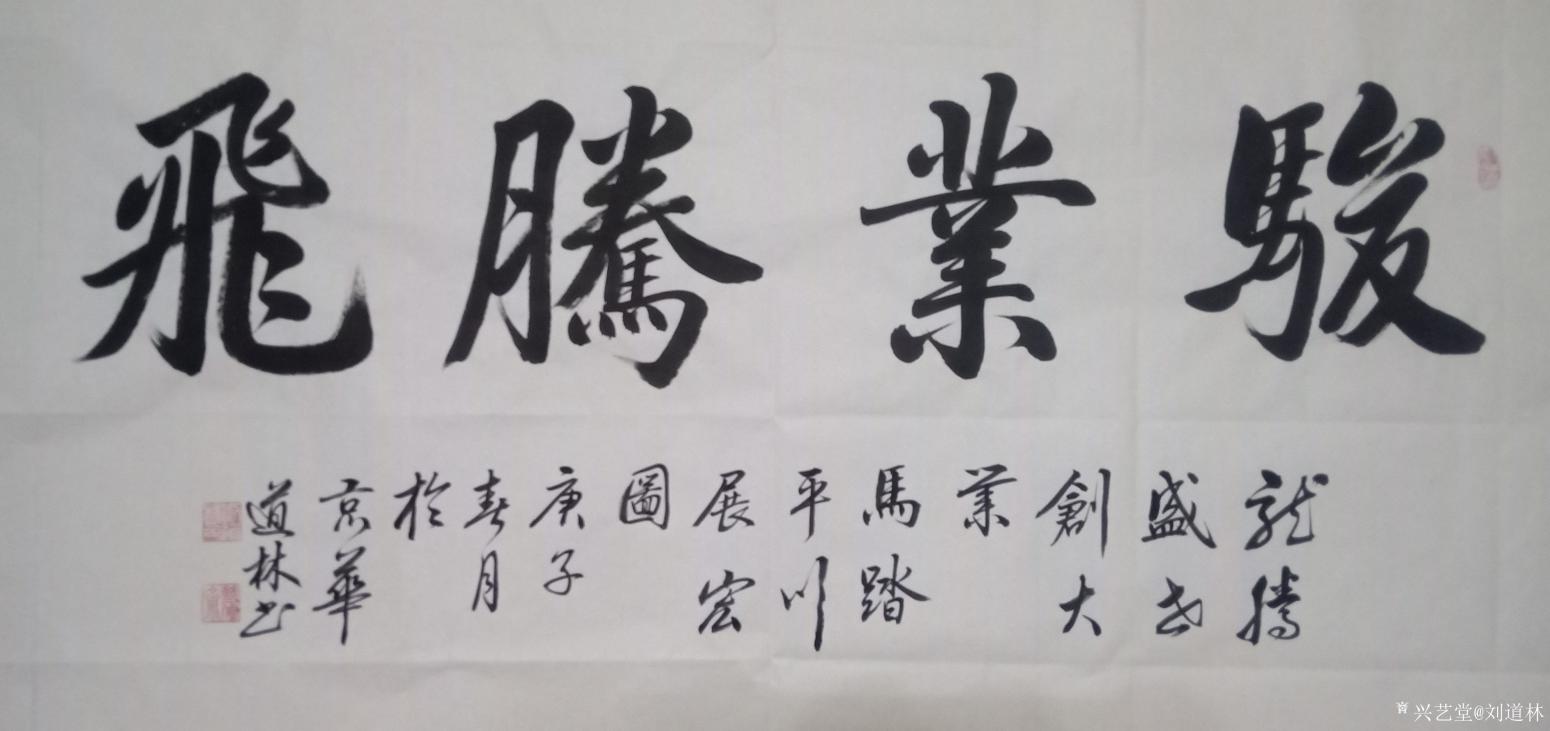 駿業騰飛
龍騰
盛世
創大
業
馬踏
平川
展宏
圖
庚子
春月
於
京華
道林书
兴艺堂@刘道林